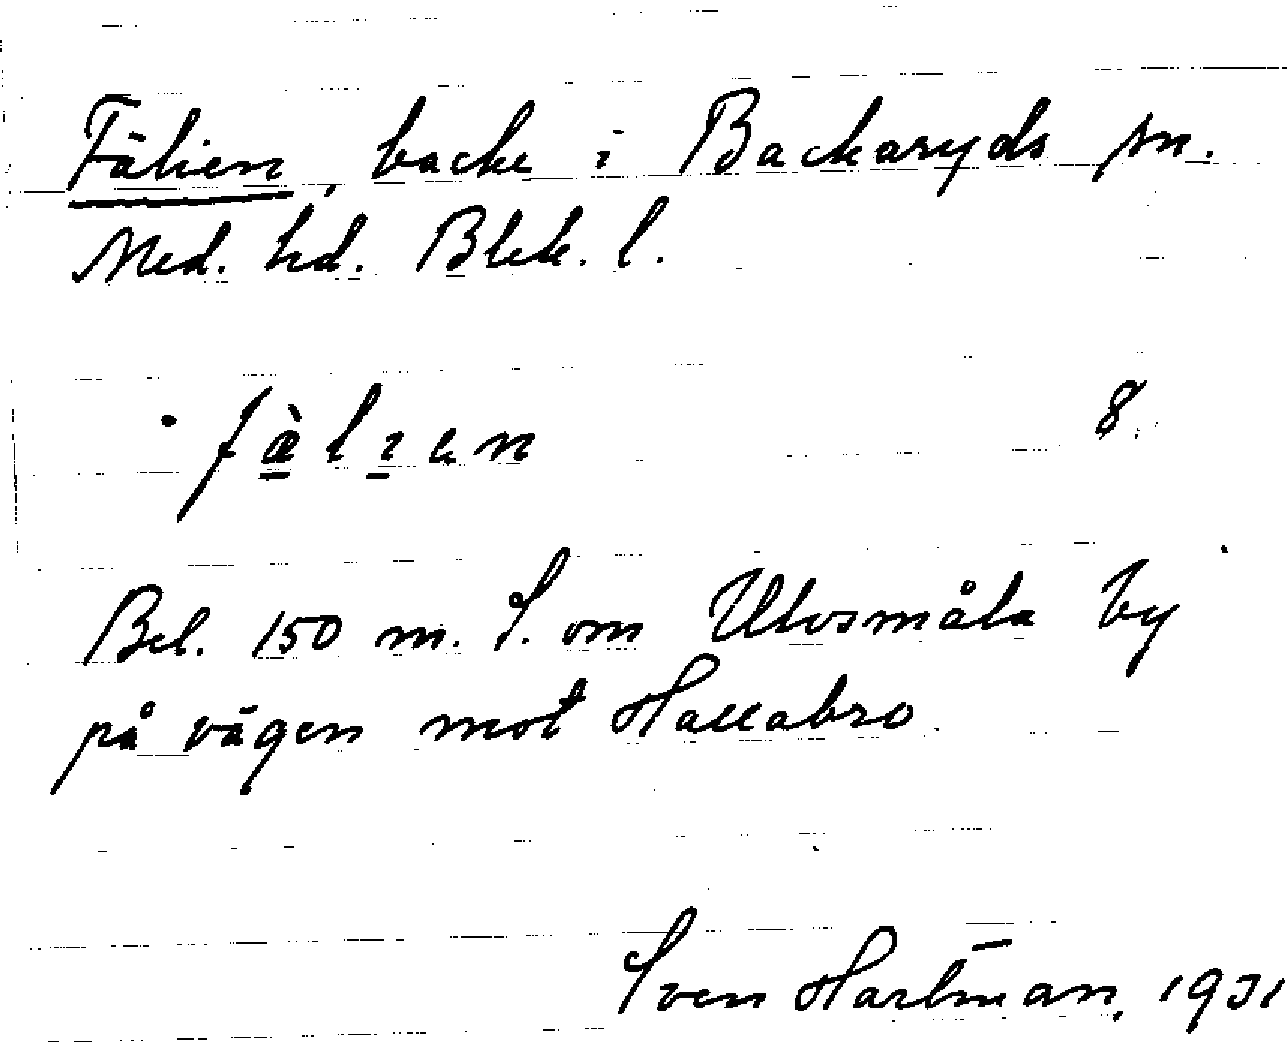 Fälien, backe i Backaryds sn.
Med. hd. Blek. l.
· fæ̀lɪen 8.
Bel. 150 m. S. om Ulvsmåla by
på vägen mot Hallabro.
Sven Hartman, 1931